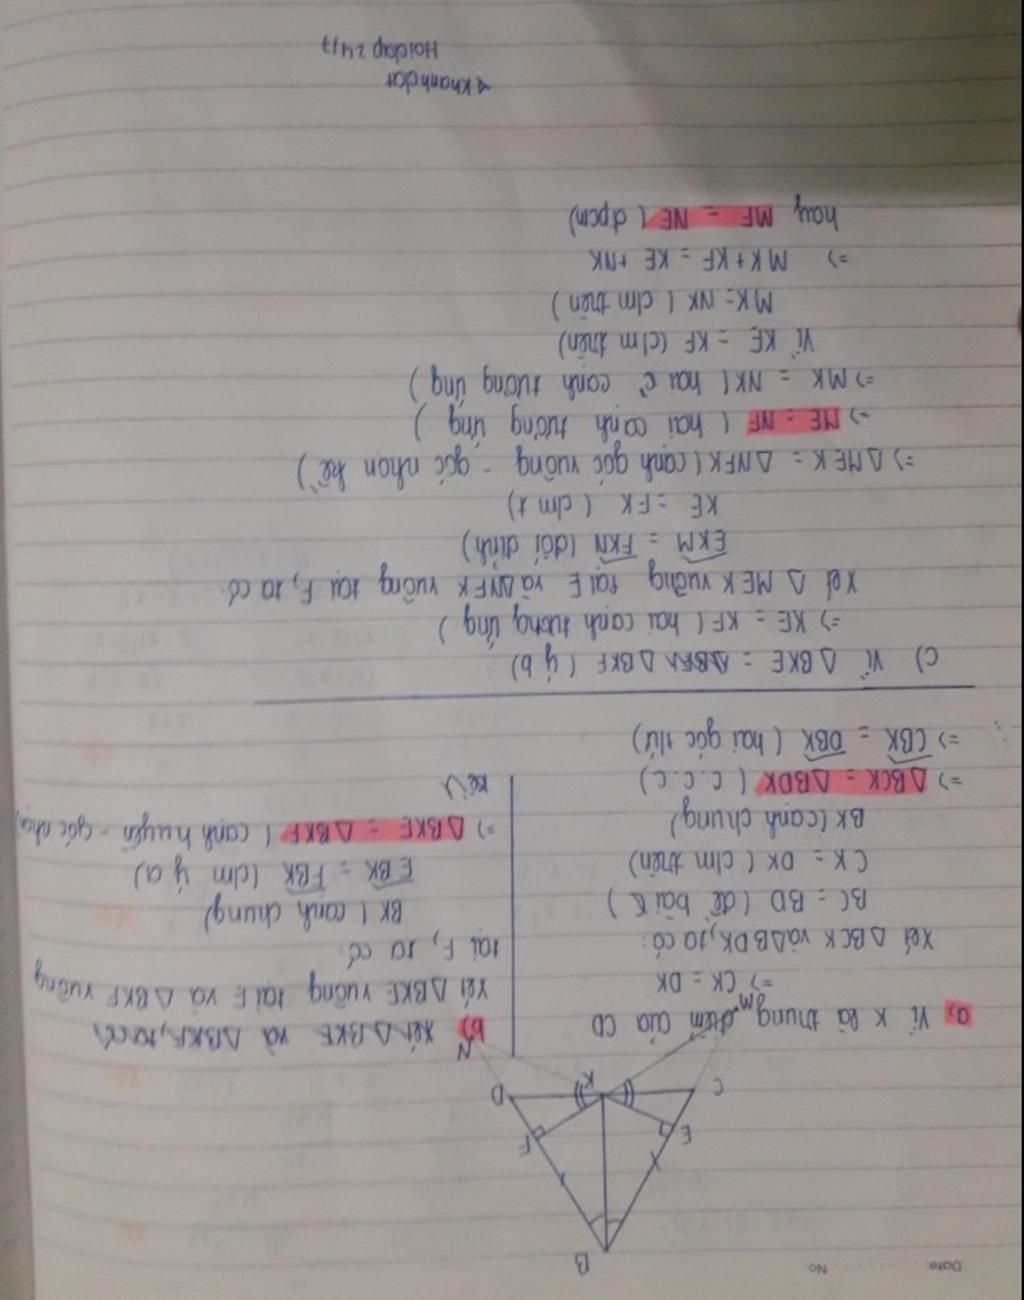 Date: ........... No.
B
E
F
C
K
D
M
N
a) Vì K là trung điểm của CD
=> CK = DK
Xét △BCK và △BDK, ta có:
BC = BD (đề bài)
CK = DK (clm trên)
BK (cạnh chung)
=> △BCK = △BDK (c.c.c)
=> CBK = DBK (hai góc t/ứ)
b) Xét △BKE và △BKF, ta có
Xét △BKE vuông tại E và △BKF vuông
tại F, ta có:
BK (cạnh chung)
EBK = FBK (clm ý a)
=> △BKE = △BKF (cạnh huyền - góc nhọn)
c) Vì △BKE = △BKF (ý b)
=> KE = KF (hai cạnh tương ứng)
Xét △MEK vuông tại E và △NFK vuông tại F, ta có:
EKM = FKN (đối đỉnh)
KE = FK (clm t)
=> △MEK = △NFK (cạnh góc vuông - góc nhọn kề)
=> ME = NF (hai cạnh tương ứng)
=> MK = NK (hai c cạnh tương ứng)
Vì KE = KF (clm trên)
MK = NK (clm trên)
=> MK + KF = KE + NK
hay MF = NE (đpcm)
khanhdat
Hoidap 247